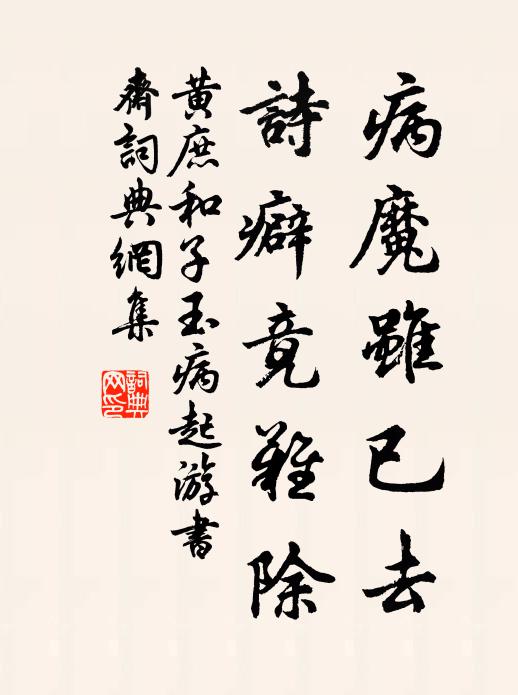 病魔雖已去
詩癖竟難除
黃庶和子玉病起游書
齋詞典網集
詞典网印